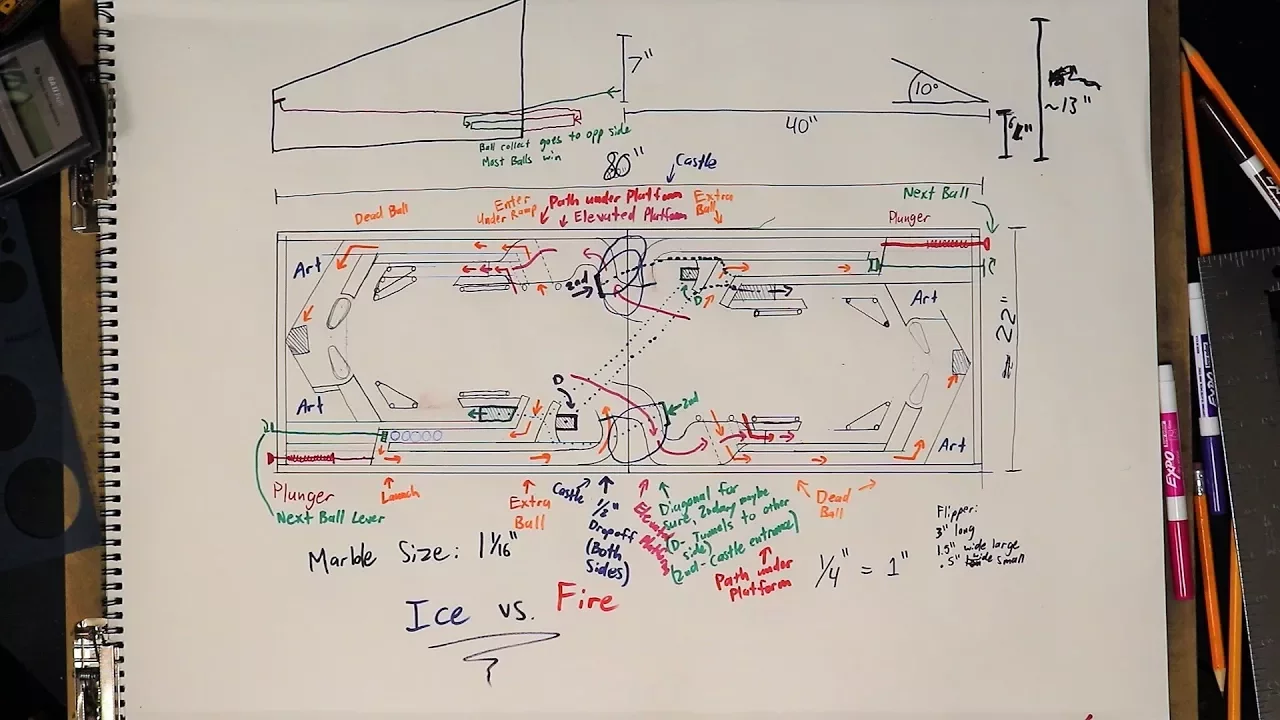 7"
10°
~13"
40"
Ball collect goes to opp side
Most Balls win
80"
Castle
Next Ball
Dead Ball
Enter
Under Ramp
Path under Platform
Elevated Platform
Extra
Ball
Plunger
Art
2nd
D
Art
22"
D
2nd
Art
Art
Plunger
Next Ball Lever
Launch
Extra
Ball
Castle
1/8"
Dropoff
(Both
Sides)
Elevated
Diagonal for
sure, 2nd
maybe
(D- Tunnels to other
side)
(2nd-Castle entrance)
Path under
Platform
Dead
Ball
Flipper:
3" long
1.5" wide large
.5" wide small
Marble Size: 1 1/16"
1/4" = 1"
Ice vs. Fire
EXPO
EXPO